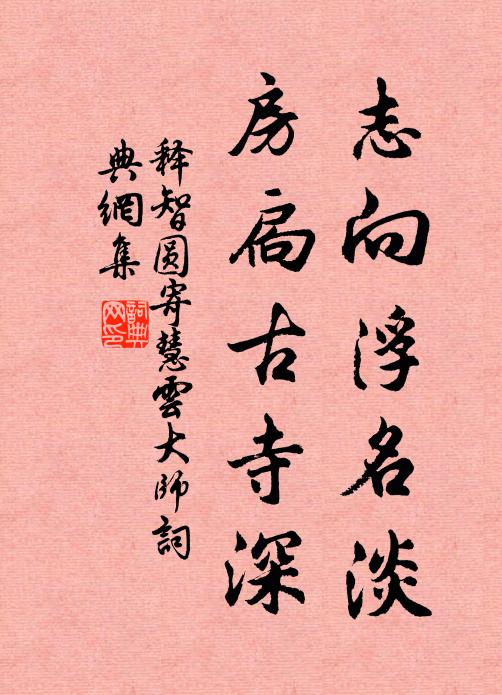 志向浮名淡
房扃古寺深
释智圆寄慧雲大师詞
典網集
詞典网印